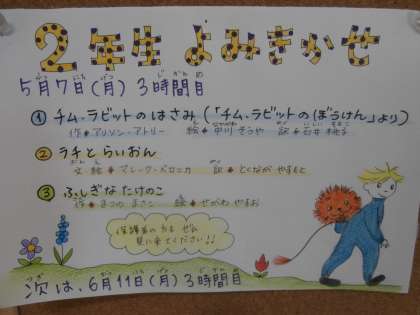 2年生 よみきかせ
5月7日(月) 3時間目
① チム・ラビットの はさみ (「チム・ラビットの ぼうけん」より)
作・アリソン・アトリー 絵・中川 そうや 訳・石井 桃子
② ラチと らいおん
文・絵・マレーク・ベロニカ 訳・とくなが やすもと
③ ふしぎな たけのこ
作・まつの まさこ 絵・せがわ やすお
保護者の 方も ぜひ
見に来てください!!
次は、6月11日(月) 3時間目